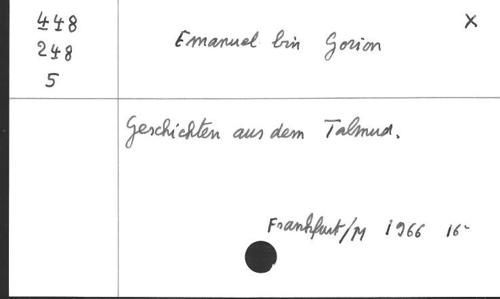 448
248
5
Emanuel bin Gorion
X
Geschichten aus dem Talmud.
Frankfurt/M 1966 16-